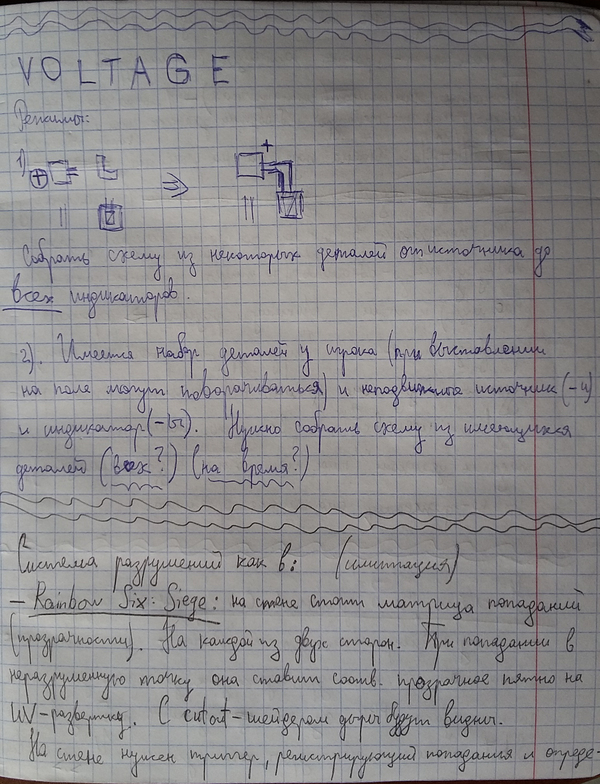 VOLTAGE
Режимы:
1)
Собрать схему из некоторых деталей от источника до
всех индикаторов.
2). Имеется набор деталей у игрока (при выставлении
на поле могут поворачиваться) и неподвижные источник(-и)
и индикатор(-ы). Нужно собрать схему из имеющихся
деталей (всех?) (на время?)
Система разрушений как в: (имитация)
- Rainbow Six: Siege: на стене стоит матрица попаданий
(прозрачности). На каждой из двух сторон. При попадании в
неразрушенную точку она ставит соотв. прозрачное пятно на
UV-развертку. С cutout-шейдером дыры будут видны.
На стене нужен триггер, регистрирующий попадания и опреде-